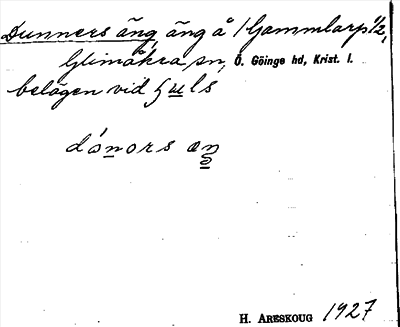 Dunners äng, äng å / Gammlarp 1/2,
Glimåkra sn, Ö. Göinge hd, Krist. l.
belägen vid
dónors æŋ
H. ARESKOUG 1927